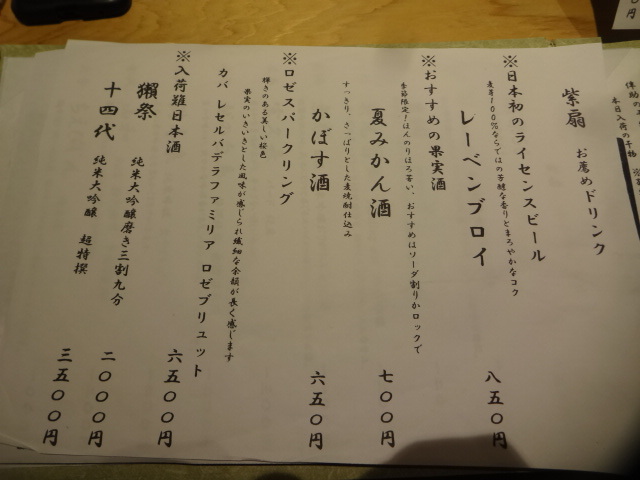 紫扇 お薦めドリンク
※日本初のライセンスビール
麦芽100%ならではの芳醇な香りとまろやかなコク
レーベンブロイ 八五〇円
※おすすめの果実酒
季節限定!ほんのりほろ苦い、おすすめはソーダ割りかロックで
夏みかん酒 七〇〇円
すっきり、さっぱりとした麦焼酎仕込み
かぼす酒 六五〇円
※ロゼスパークリング
輝きのある美しい桜色
果実のいきいきとした風味が感じられ繊細な余韻が長く感じます
カバ レセルバデラファミリア ロゼブリュット 六五〇〇円
※入荷難日本酒
獺祭 純米大吟醸磨き三割九分 二〇〇〇円
十四代 純米大吟醸 超特撰 三五〇〇円
本日入荷の干物
円